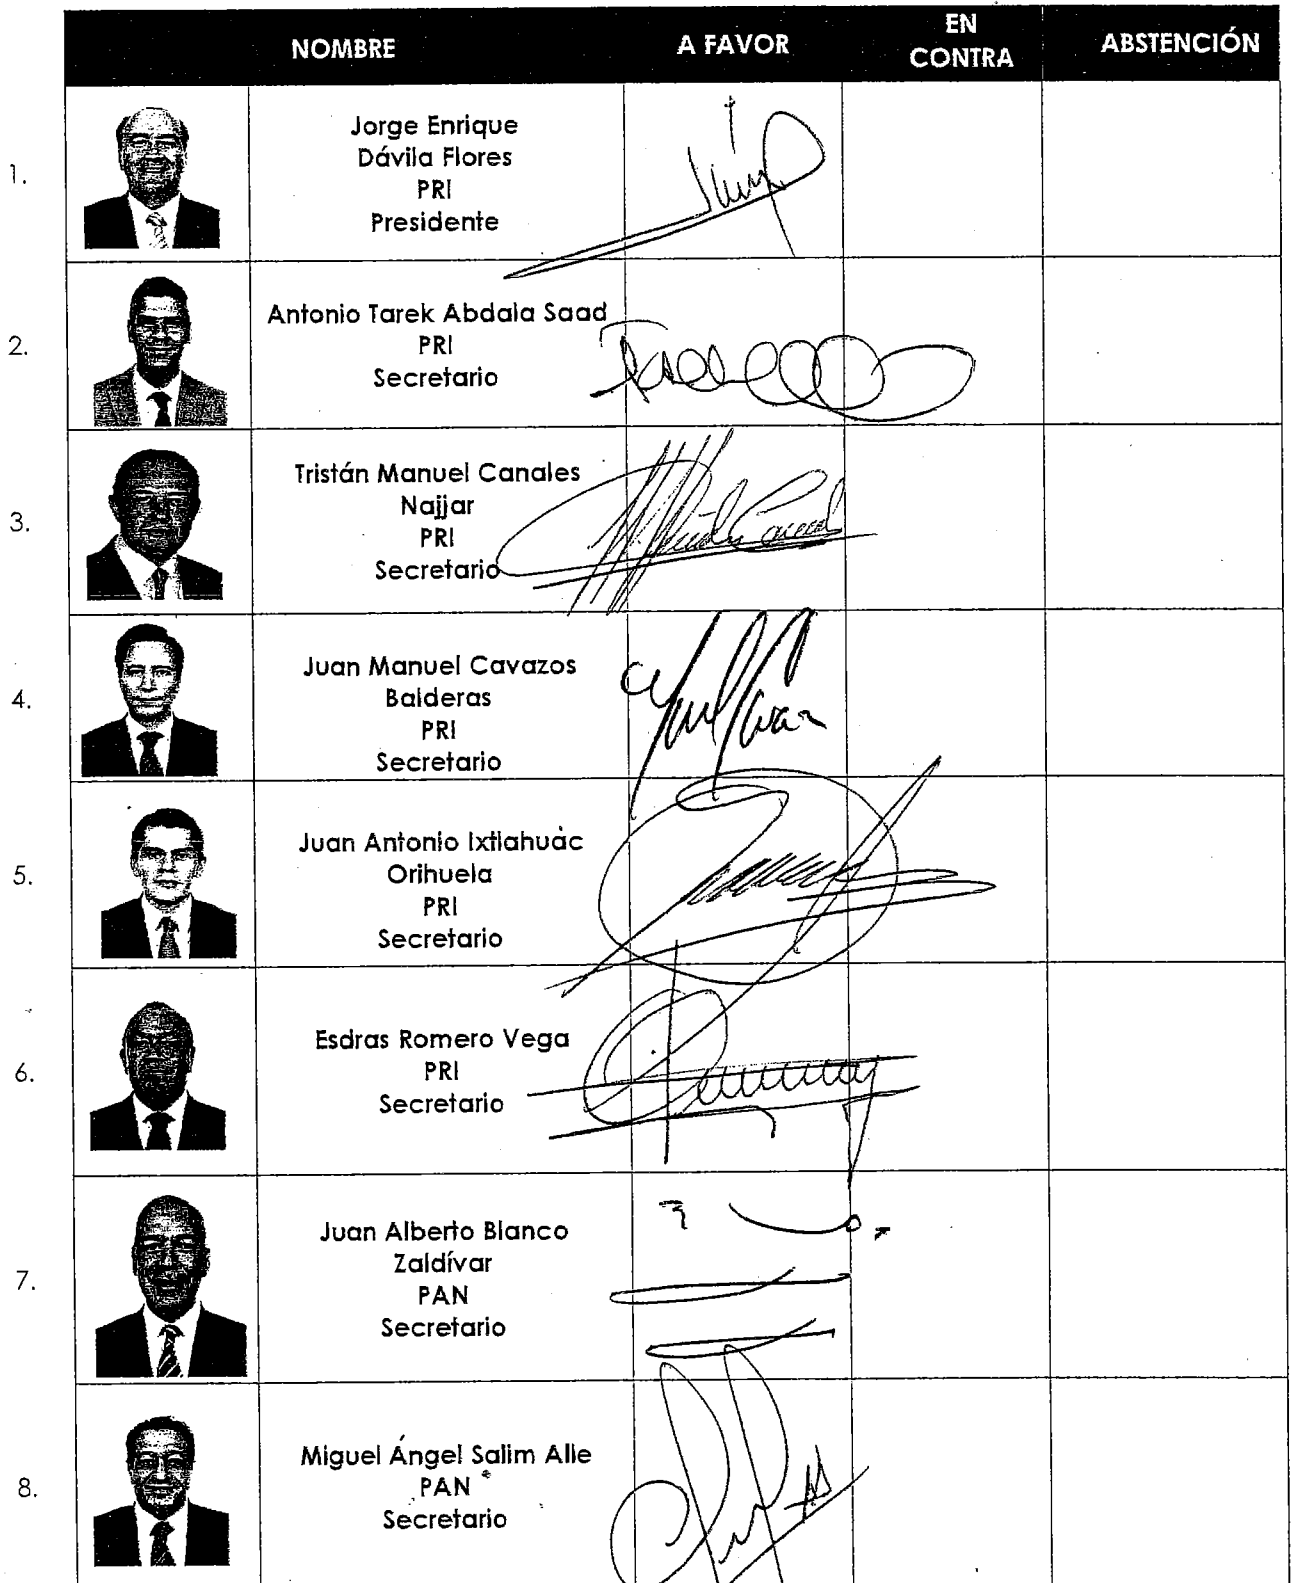 NOMBRE A FAVOR EN CONTRA ABSTENCIÓN
1. Jorge Enrique
Dávila Flores
PRI
Presidente
2. Antonio Tarek Abdala Saad
PRI
Secretario
3. Tristán Manuel Canales
Najjar
PRI
Secretario
4. Juan Manuel Cavazos
Balderas
PRI
Secretario
5. Juan Antonio Ixtlahuác
Orihuela
PRI
Secretario
6. Esdras Romero Vega
PRI
Secretario
7. Juan Alberto Blanco
Zaldívar
PAN
Secretario
8. Miguel Ángel Salim Alle
PAN
Secretario